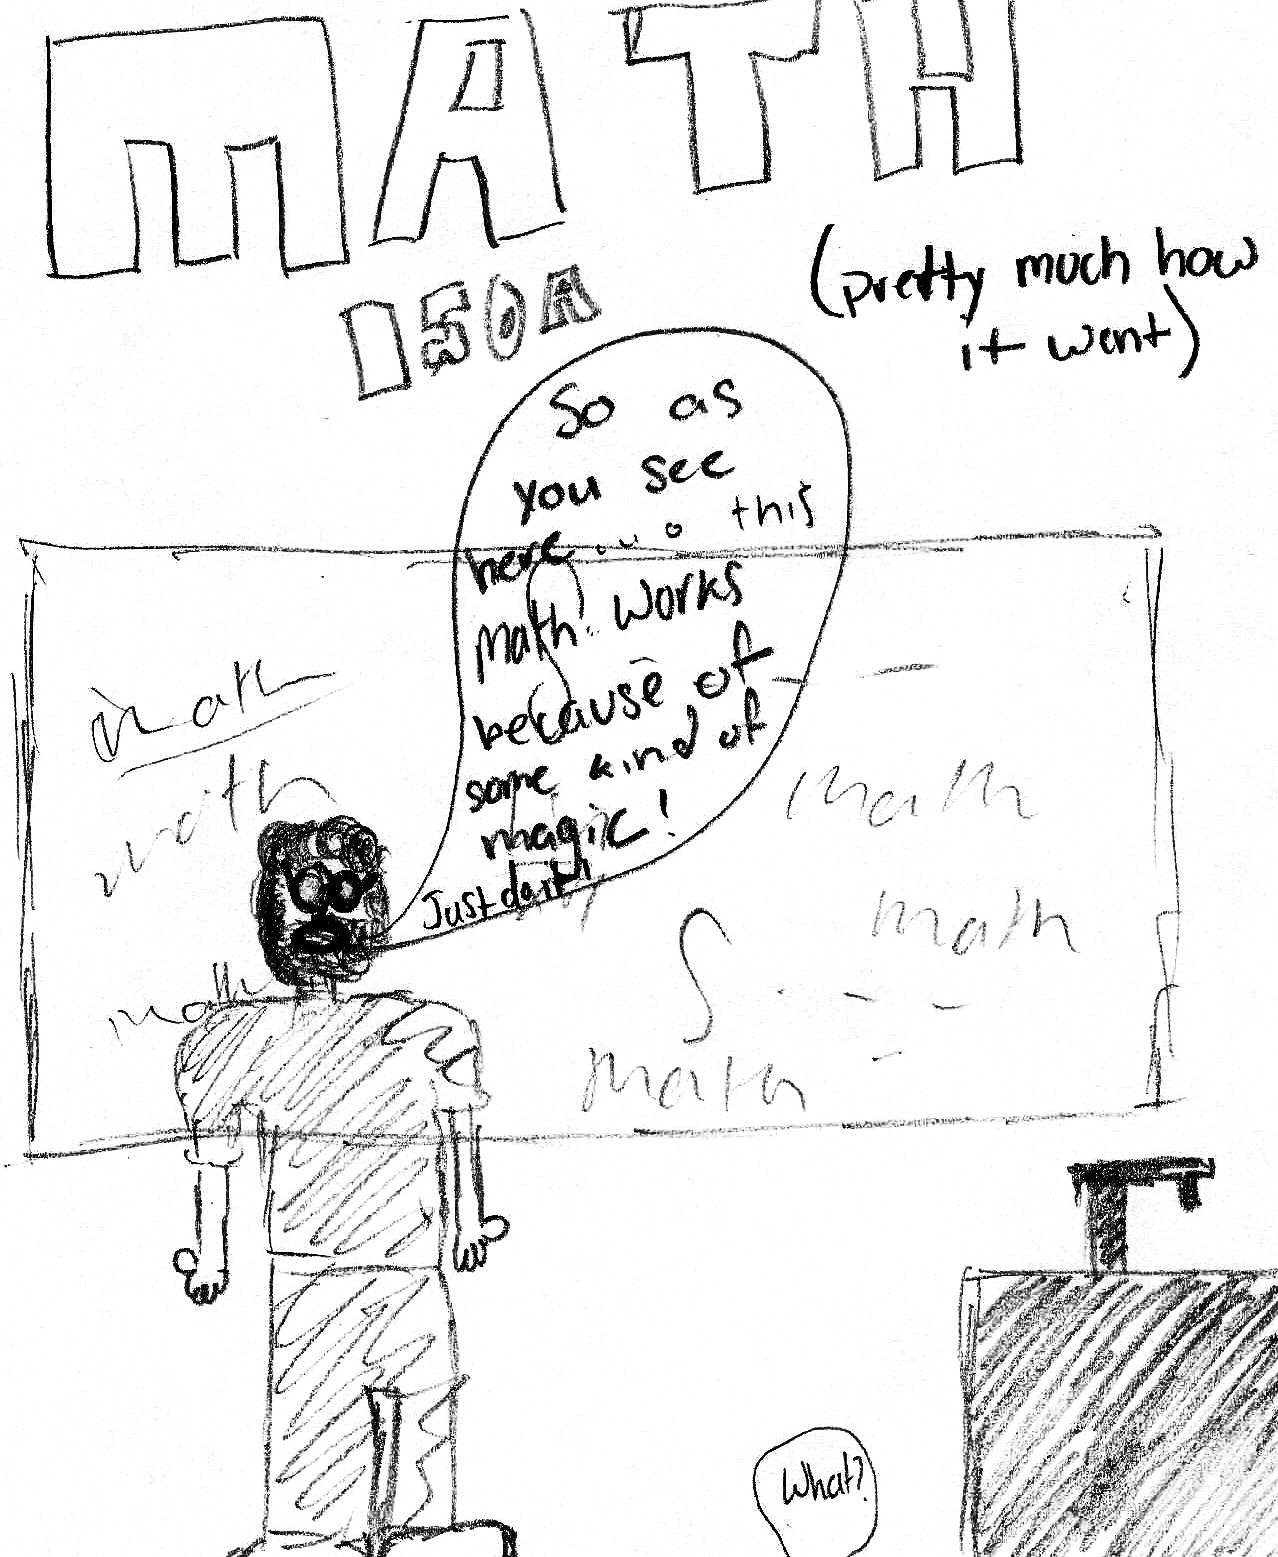 MATH
150A
(pretty much how
it went)
So as
you see
here.... this
math works
because of
some kind of
magic!
Just do it!
math
math
math
math
math
∫
math
What?